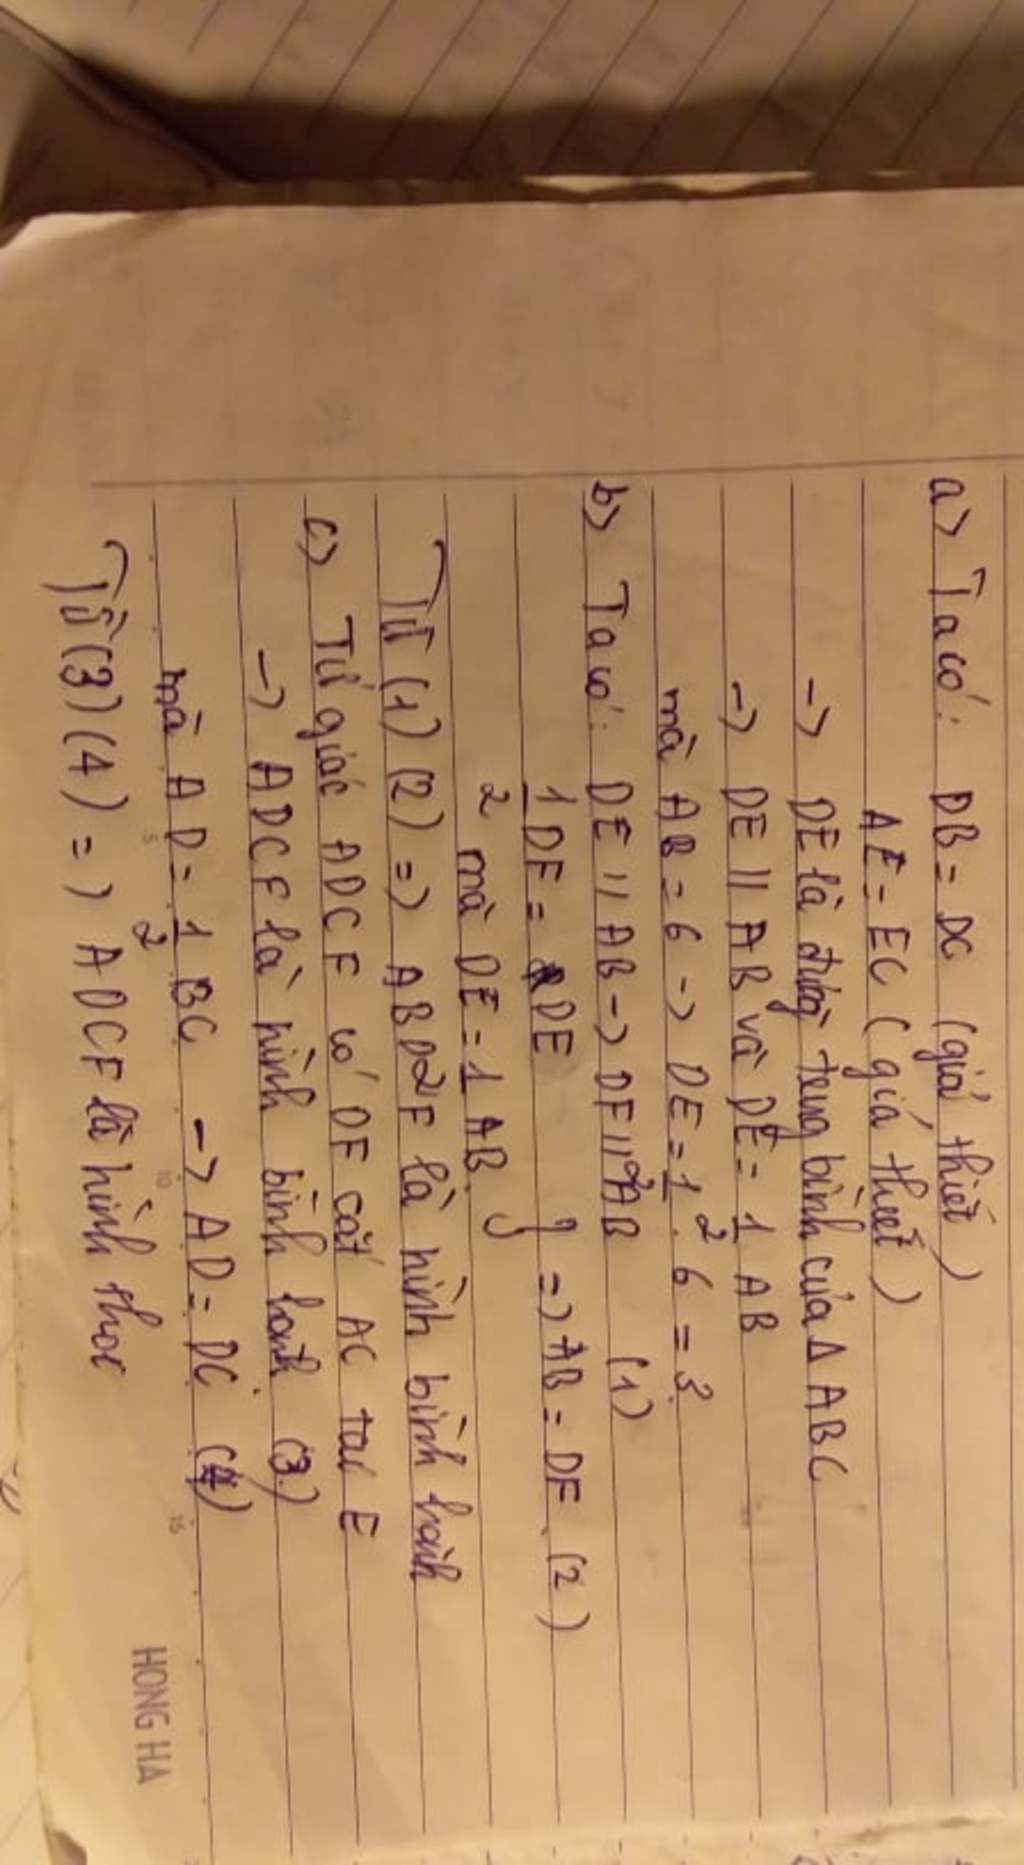 a) Ta có: DB = DC (giả thiết)
AE = EC (giả thiết)
-> DE là đường trung bình của Δ ABC
-> DE // AB và DE = 1/2 AB
mà AB = 6 -> DE = 1/2 . 6 = 3
b) Ta có: DE // AB -> DF // AB (1)
1/2 DF = DE } => AB = DF (2)
mà DE = 1/2 AB
Từ (1) (2) => ABDF là hình bình hành
c) Tứ giác ADCF có DF cắt AC tại E
-> ADCF là hình bình hành (3)
mà AD = 1/2 BC -> AD = DC (4)
Từ (3) (4) => ADCF là hình thoi
5
10
15
HONG HA